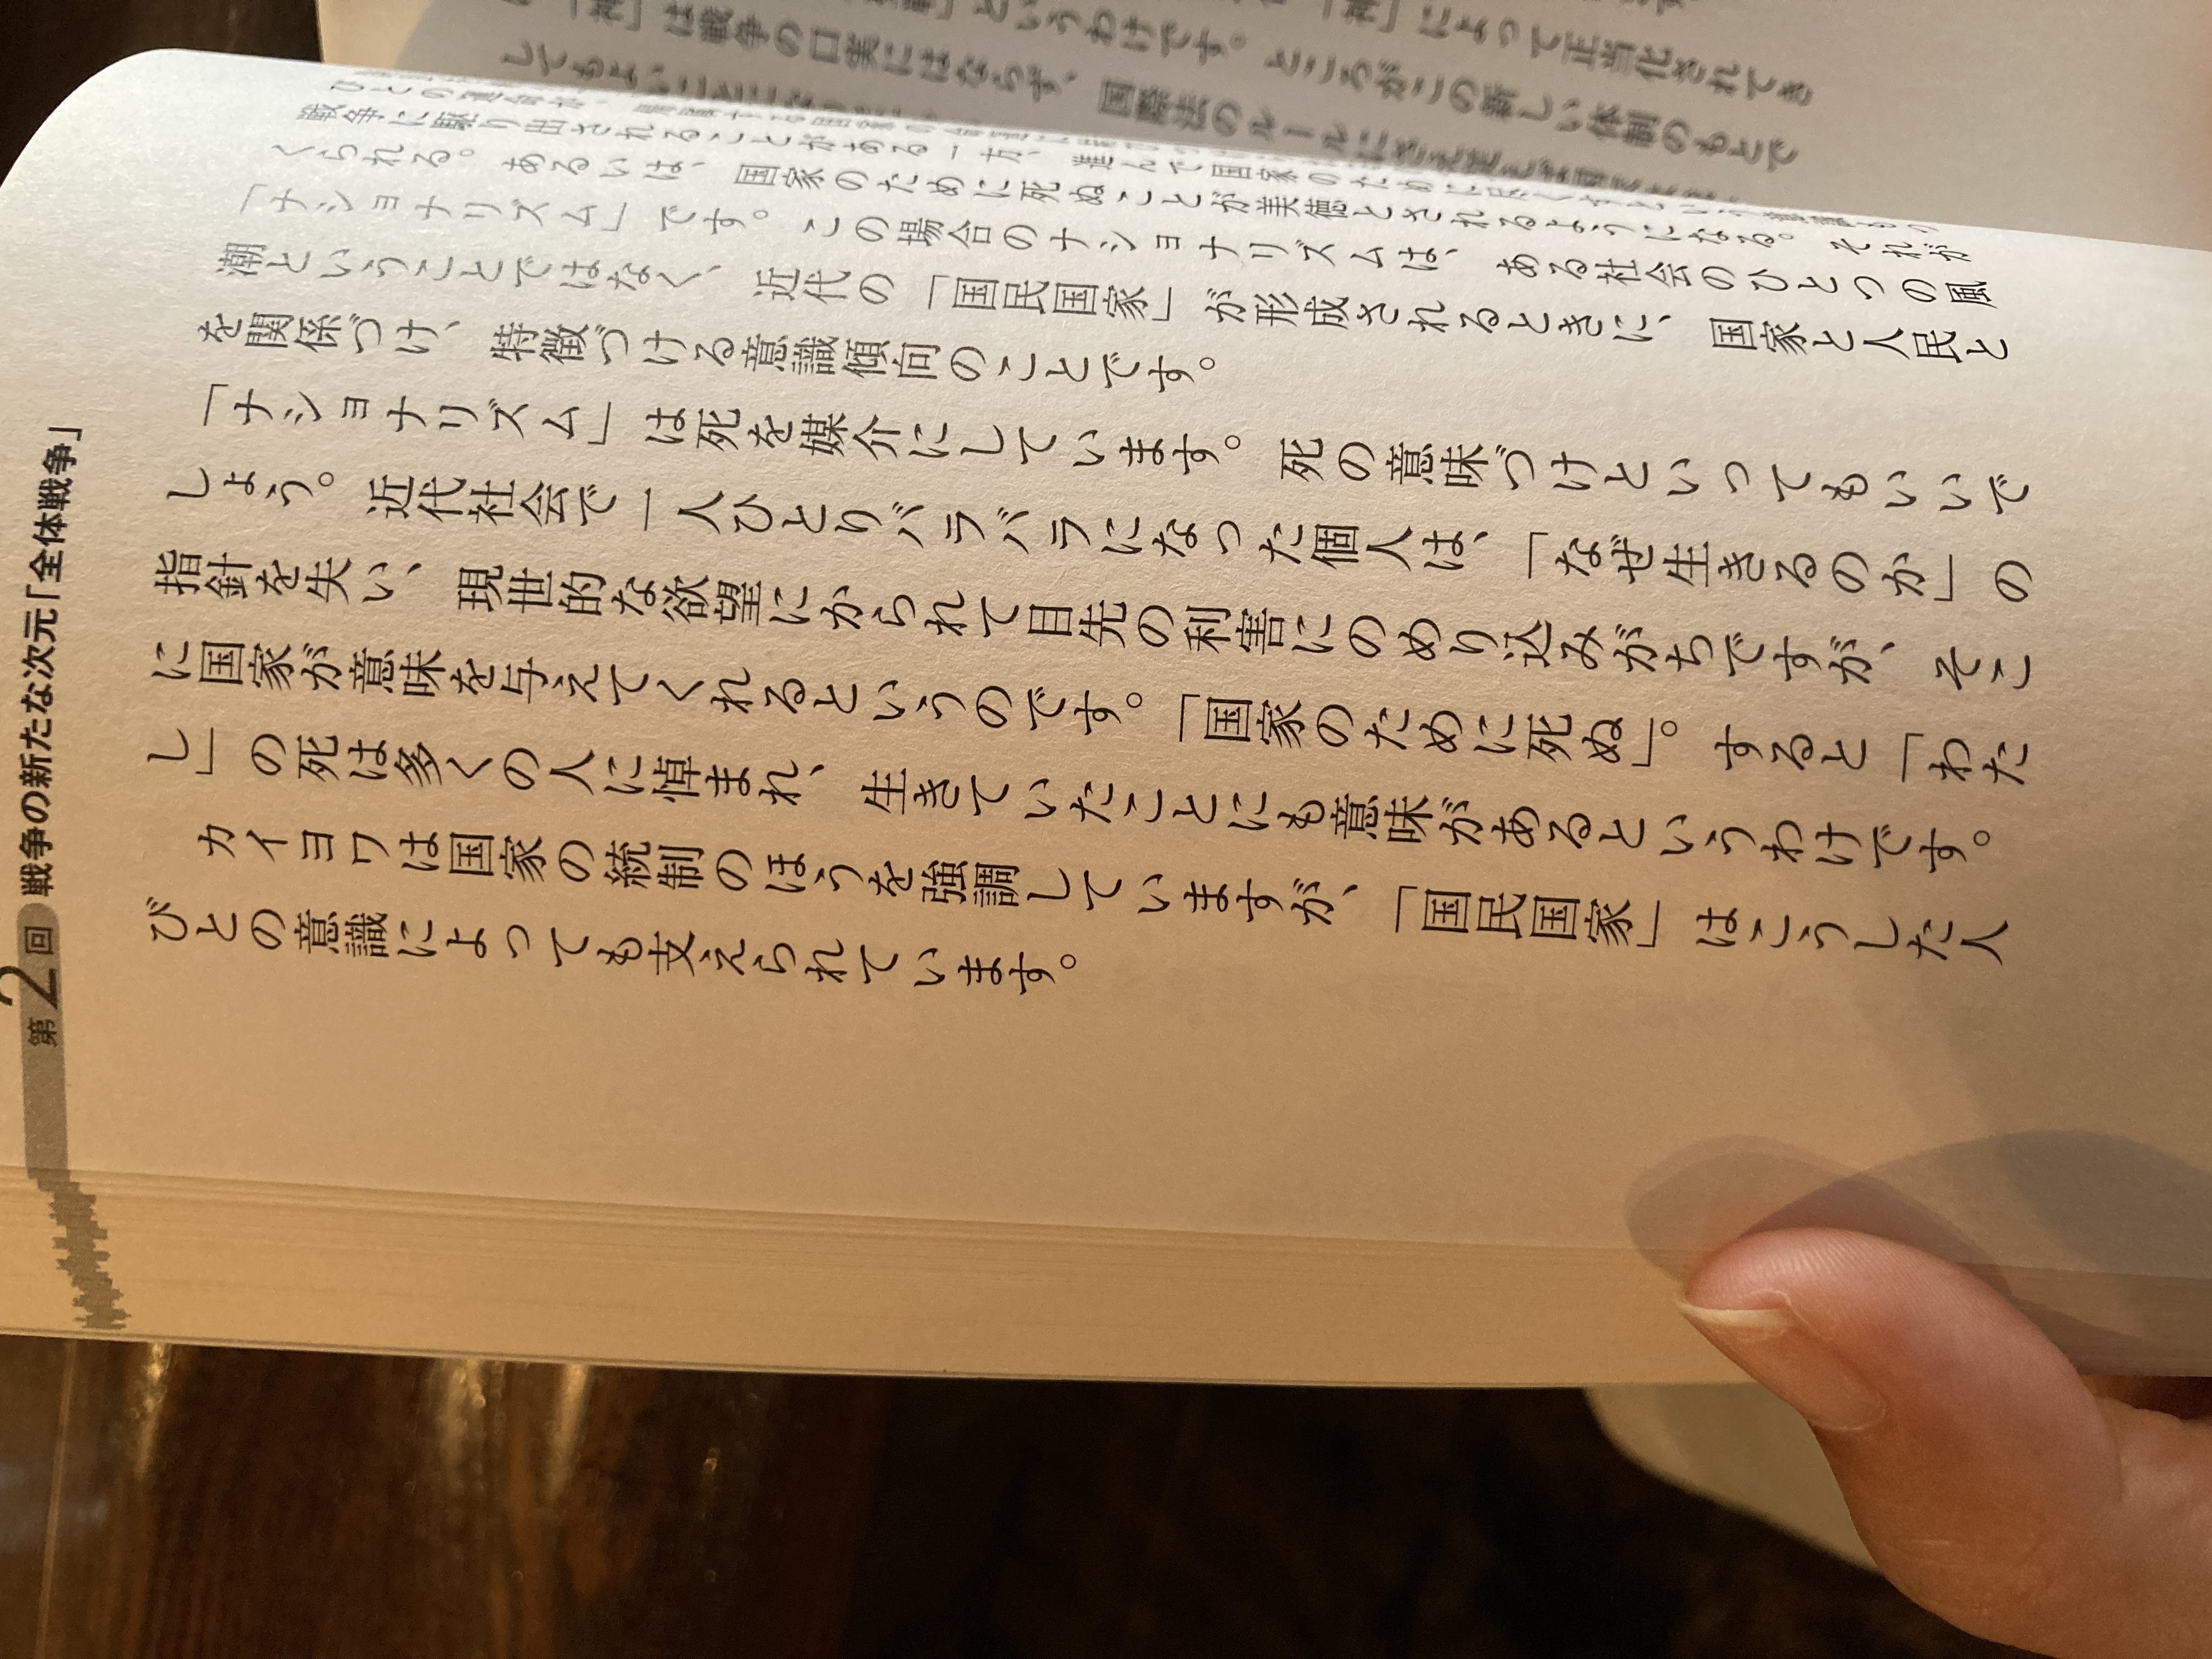 は戦争の口実にはならず、国際法のルールにさえ
というわけです。ところがこの新しい体制のもとで
によって正当化されてき
戦争に駆り出されることがある一方、進んで国家のために
くられる。あるいは、国家のために死ぬことが美徳とされるようになる。それが
「ナショナリズム」です。この場合のナショナリズムは、ある社会のひとつの風
潮ということではなく、近代の「国民国家」が形成されるときに、国家と人民と
を関係づけ、特徴づける意識傾向のことです。
「ナショナリズム」は死を媒介にしています。死の意味づけといってもいいで
しょう。近代社会で一人ひとりバラバラになった個人は、「なぜ生きるのか」の
指針を失い、現世的な欲望にかられて目先の利害にのめり込みがちですが、そこ
に国家が意味を与えてくれるというのです。「国家のために死ぬ」。すると「わた
し」の死は多くの人に悼まれ、生きていたことにも意味があるというわけです。
カイヨワは国家の統制のほうを強調していますが、「国民国家」はこうした人
びとの意識によっても支えられています。
第2回 戦争の新たな次元「全体戦争」